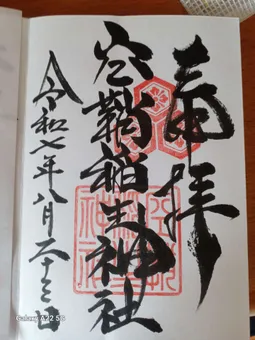 奉拝
空鞘稲生神社
令和七年八月二十三日
Galaxy A22 5G